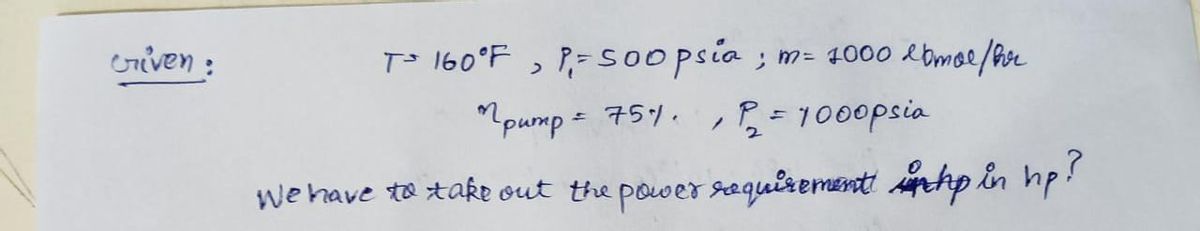 Given : T= 160°F , P₁=500psia ; m= 1000 lbmol/hr
ηpump = 75%. , P₂ = 1000psia
We have to take out the power requirement in hp?